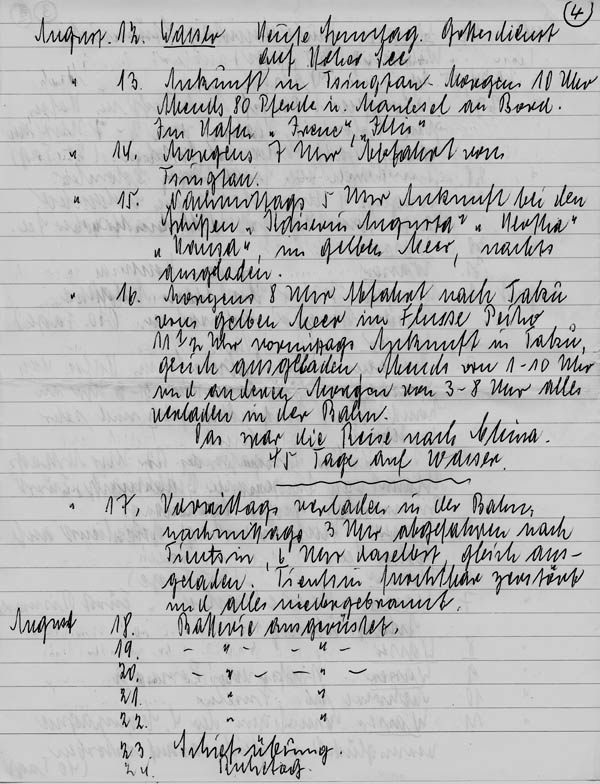 4
August. 12. Wasser Heute Sonntag. Gottesdienst
auf Hoher See
" 13. Ankunft in Tsingtau Morgens 10 Uhr
Abends 80 Pferde u. Maulesel an Bord.
Im Hafen „Irene", „Iltis"
" 14. Morgens 7 Uhr Abfahrt von
Tsingtau.
" 15. Nachmittags 5 Uhr Ankunft bei den
Schiffen „Kaiserin Augusta" „Hertha"
„Hansa", im gelben Meer, nachts
ausgeladen.
" 16. Morgens 8 Uhr Abfahrt nach Takü
vom gelben Meer im Flusse Peiho
11 1/2 Uhr vormittags Ankunft in Takü,
gleich ausgeladen, Abends von 1-10 Uhr
und anderen Morgen von 3-8 Uhr alles
verladen in der Bahn.
Das war die Reise nach China.
45 Tage auf Wasser.
" 17. Vormittags verladen in der Bahn,
nachmittags 3 Uhr abgefahren nach
Tientsin, 6 Uhr daselbst, gleich aus-
geladen. Tientsin furchtbar zerstört
und alles niedergebrannt.
August 18. Batterie ausgerüstet.
19. - " - - " -
20. - " - - " -
21. " "
22. " "
23. Schießübung.
24. Ruhetag.